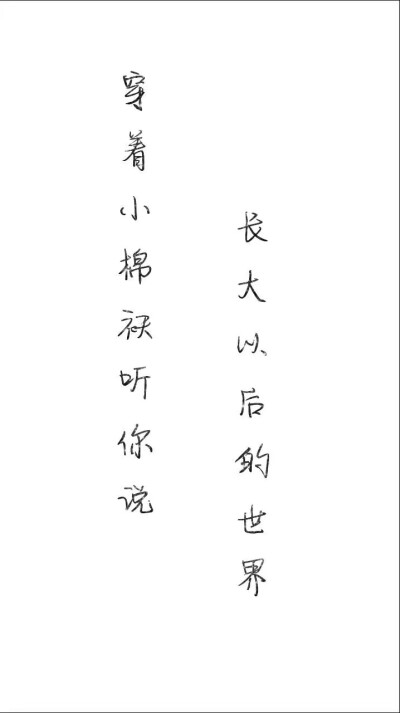 穿着小棉袄听你说
长大以后的世界